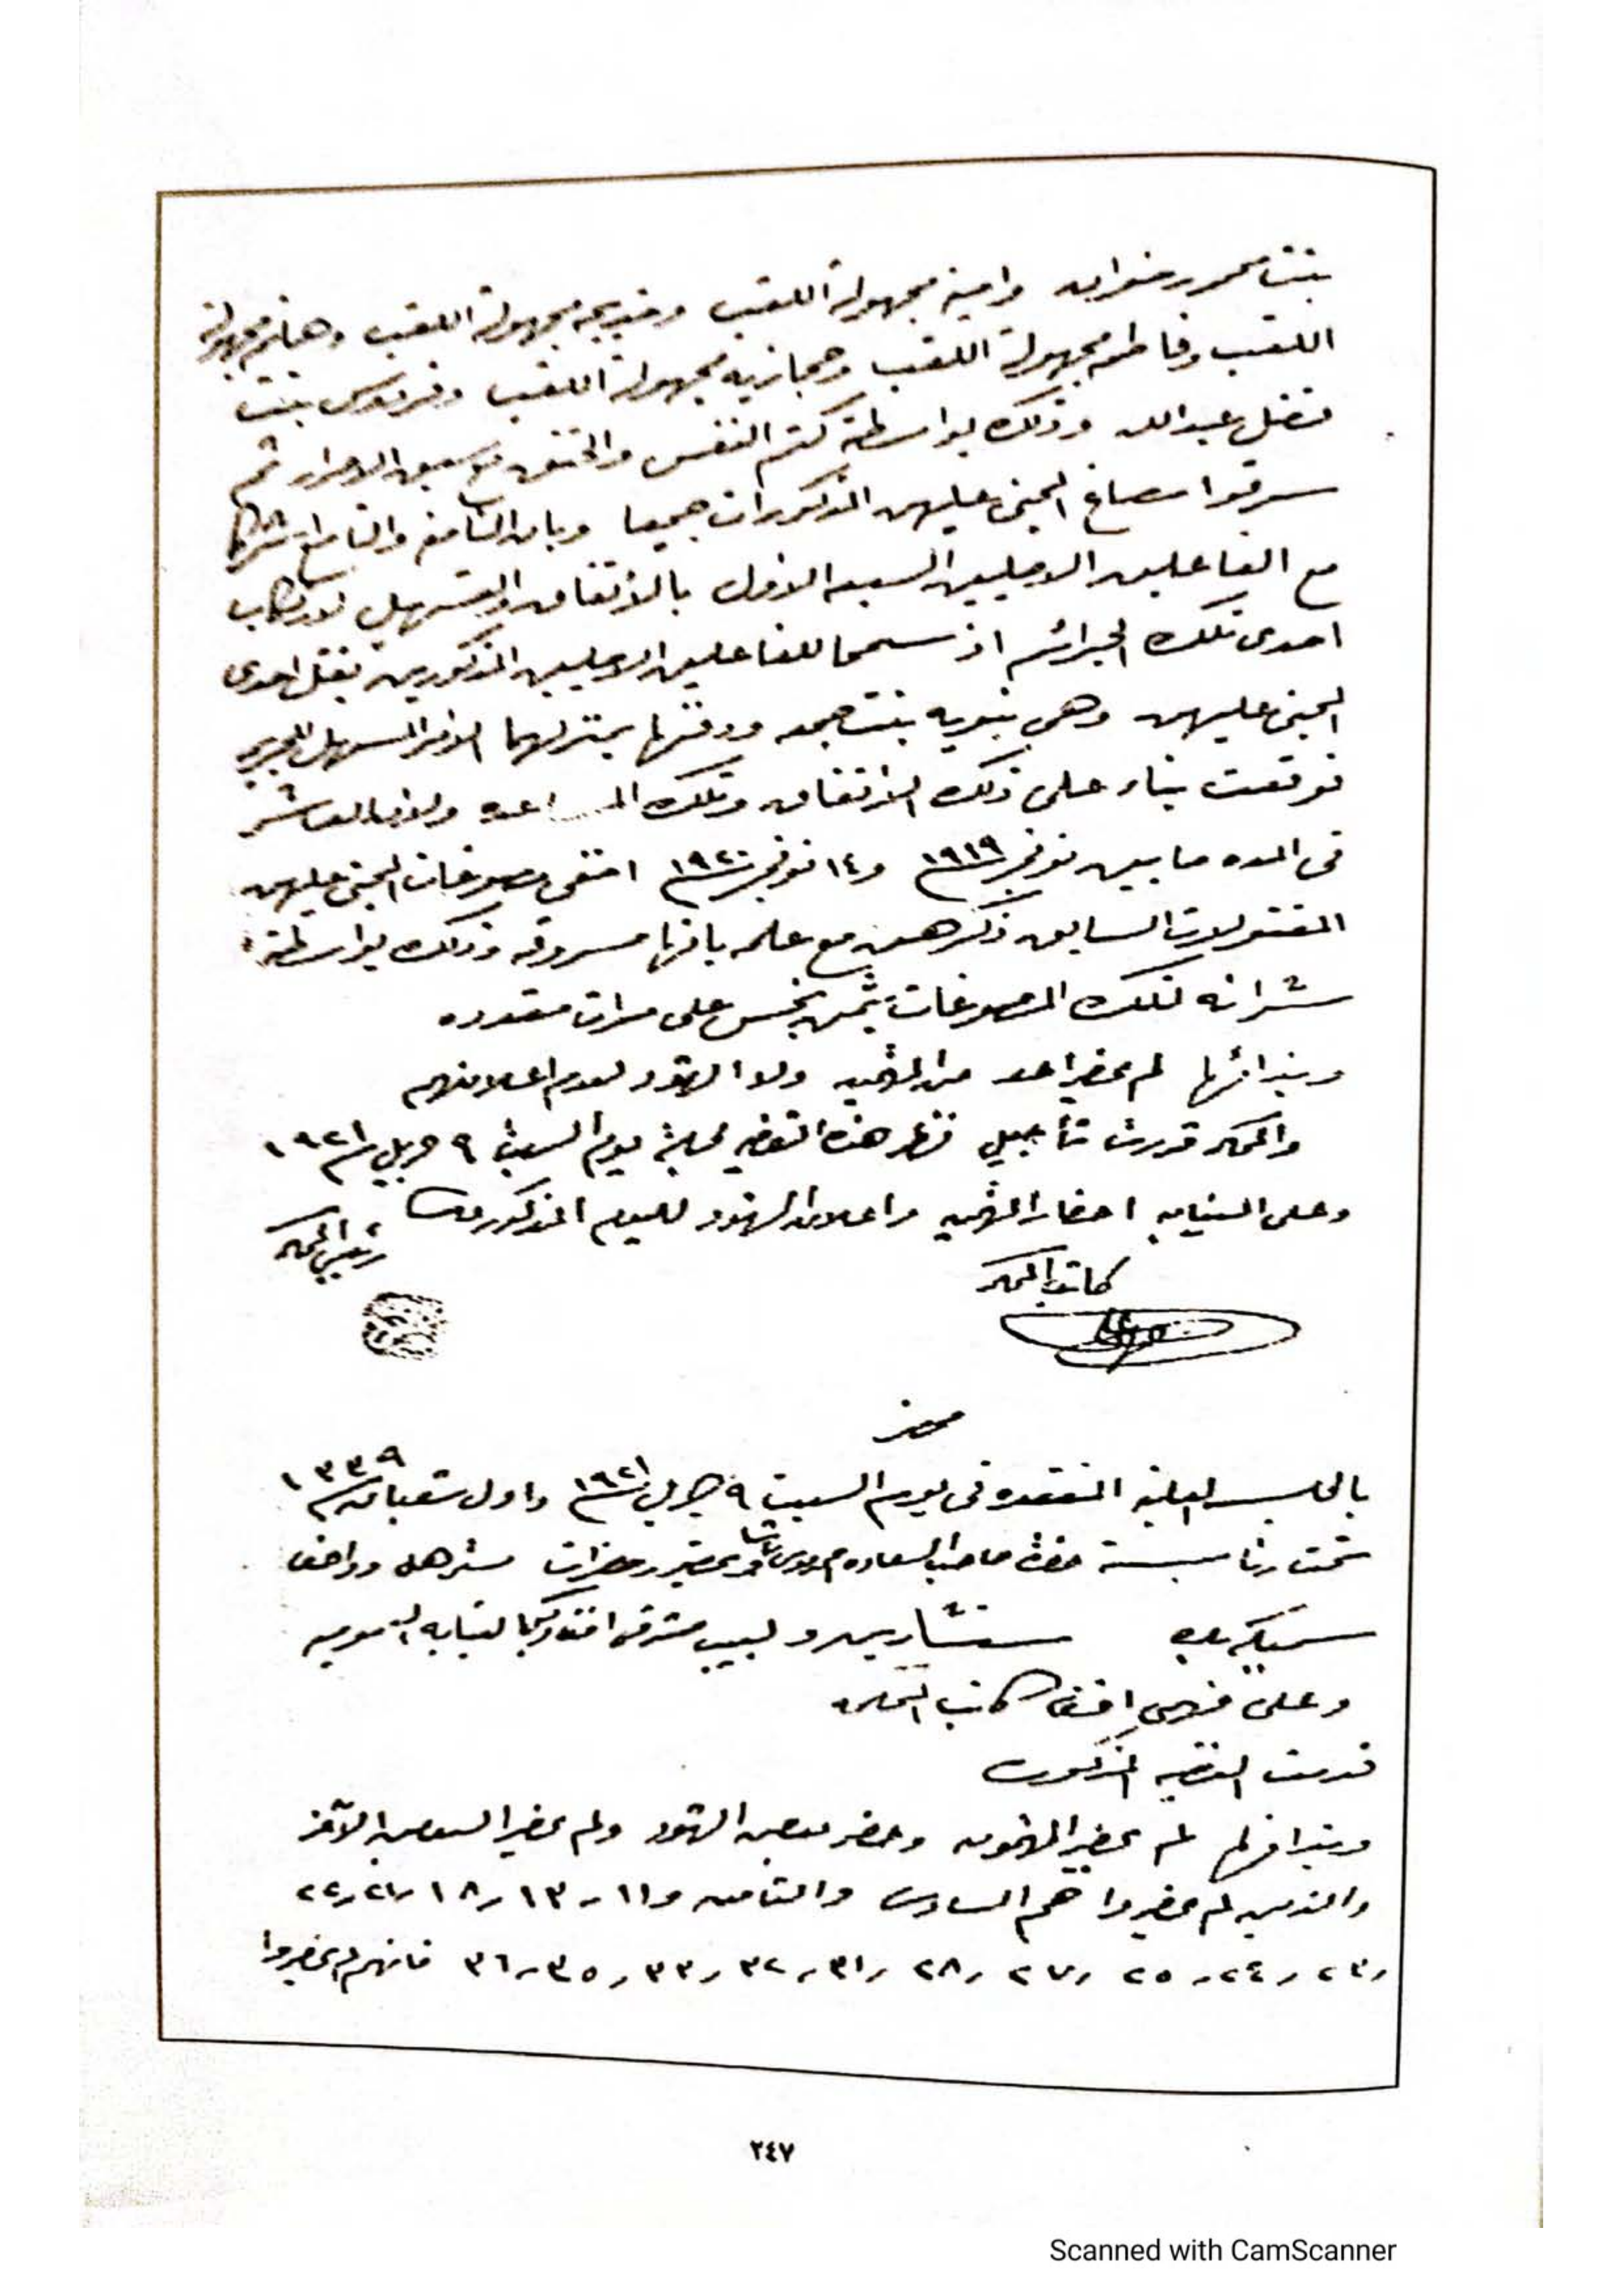 بنت محمد رضوان وامينه مجهولة اللقب وخديجه مجهولة اللقب وهانم مجهولة
اللقب وفاطمه مجهولة اللقب وحجازيه مجهولة اللقب وفردوس بنت
فضل عبدالله وذلك بواسطة كتم النفس والخنق مع سبق الاصرار ثم
سرقوا مصاغ المجنى عليهن المذكورات جميعا وبان الثامن والتاسع اشتركا
مع الفاعلين الاصليين السبعه الاول بالاتفاق والتسهيل لارتكاب
احدى تلك الجرائم اذ سمحا للفاعلين الاصليين المذكورين بقتل احدى
المجنى عليهن وهى نبويه بنت جمعه ودفنها بمنزلهما الامر المسهل للجريمه
فوقعت بناء على ذلك الاتفاق وتلك المساعده ولان العاشر
فى المده ما بين نوفمبر سنة ١٩١٩ و١٤ نوفمبر سنة ١٩٢٠ اخفى مصوغات المجنى عليهن
المقتولات السابق ذكرهن مع علمه بانها مسروقه وذلك بواسطة
شرائه لتلك المصوغات بثمن بخس على مرات متعدده
وبندائها لم يحضر احد من المتهمين ولا الشهود لعدم اعلانهم
والمحكمه قررت تأجيل نظر هذه القضيه لجلسة يوم السبت ٩ ابريل سنة ١٩٢١
وعلى النيابه احضار المتهمين واعلان الشهود لليوم المذكور
كاتب المحكمه رئيس المحكمه
محضر
بالجلسه العلنيه المنعقده فى يوم السبت ٩ ابريل سنة ١٩٢١ واول شعبان سنة ١٣٣٩
تحت رئاسة حضرة صاحب السعاده احمد موسى باشا وبحضور حضرات مستر هل وواصف
سميكه بك مستشارين ولبيب افندى وكيل النيابه العموميه
وعلى فهمى افندى كاتب المحكمه
قدمت القضيه المذكوره
وبندائها لم يحضر المتهمون وحضر بعض الشهود ولم يحضر البعض الآخر
والذين لم يحضروا هم السادس والثامن و١١ و١٣ و١٨ و٢١ و٢٢
و٢٣ و٢٤ و٢٥ و٢٧ و٢٨ و٣١ و٣٢ و٣٣ و٣٥ و٣٦ فانهم لم يحضروا
٢٤٧
Scanned with CamScanner